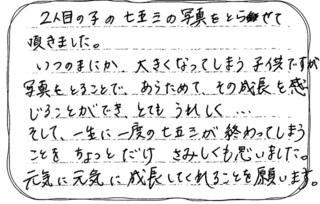 2人目の子の七五三の写真をとらせて
頂きました。
いつのまにか、大きくなってしまう子供ですが
写真をとることで、あらためて、その成長を感
じることができ、とても うれしく…
そして、一生に一度の七五三が終わってしまう
ことを ちょっとだけ さみしくも思いました。
元気に元気に成長してくれることを願います。